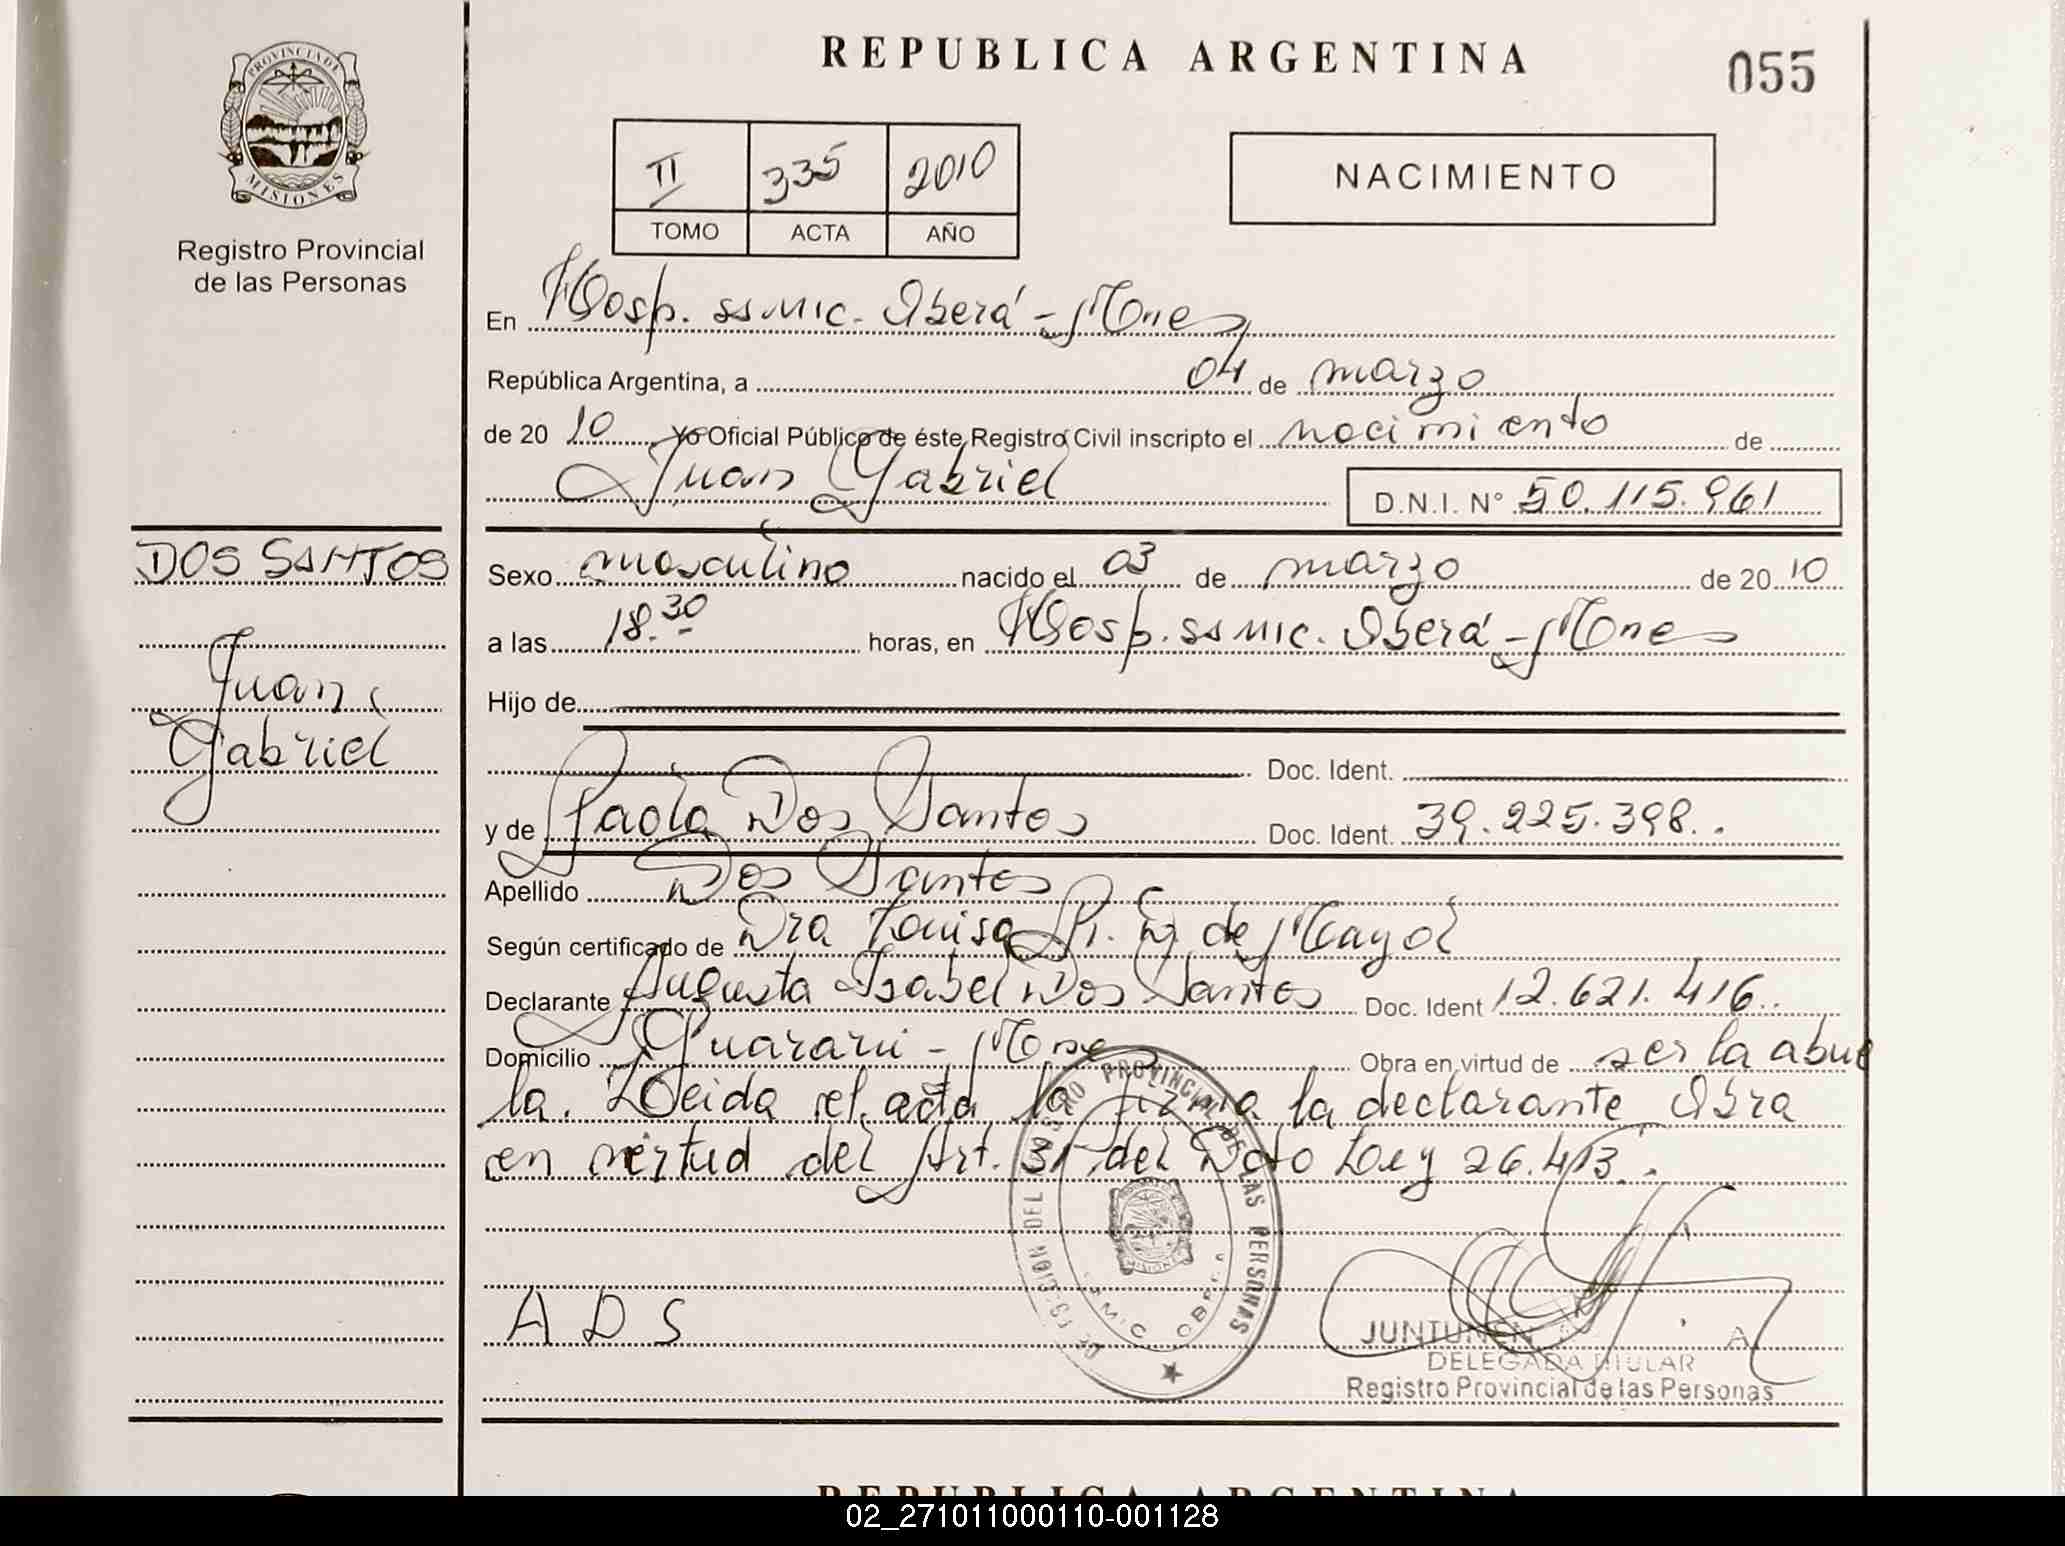 REPUBLICA ARGENTINA
055
PROVINCIA DE
MISIONES
Registro Provincial
de las Personas
II 335 2010
TOMO ACTA AÑO
NACIMIENTO
En Hosp. ssmic. Oberá - Mnes
República Argentina, a 04 de marzo
de 20 10 Yo Oficial Público de éste Registro Civil inscripto el nacimiento de
Juan Gabriel D.N.I. N° 50.115.961
DOS SANTOS
Juan
Gabriel
Sexo masculino nacido el 03 de marzo de 20 10
a las 18.30 horas, en Hosp. ssmic. Oberá - Mnes
Hijo de
Doc. Ident.
y de Paola Dos Santos Doc. Ident. 39.225.398..
Apellido Dos Santos
Según certificado de Dra Louisa de Mayol
Declarante Augusta Isabel Dos Santos Doc. Ident 12.621.416..
Domicilio Guarani - Mnes Obra en virtud de ser la abue
la. Leida el acta la firma la declarante Obra
en virtud del Art. 31 del Dcto Ley 26.413.
A D S
REGISTRO PROVINCIAL DE LAS PERSONAS
JUNTUNEN
DELEGADA TITULAR
Registro Provincial de las Personas
REPUBLICA ARGENTINA
02_271011000110-001128